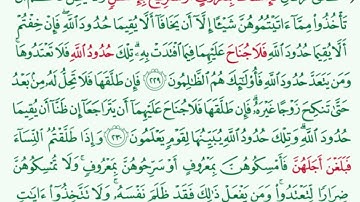 تَأْخُذُوا۟ مِمَّآ ءَاتَيْتُمُوهُنَّ شَيْـًٔا إِلَّآ أَن يَخَافَآ أَلَّا يُقِيمَا حُدُودَ ٱللَّهِ فَإِنْ خِفْتُمْ
أَلَّا يُقِيمَا حُدُودَ ٱللَّهِ فَلَا جُنَاحَ عَلَيْهِمَا فِيمَا ٱفْتَدَتْ بِهِۦ تِلْكَ حُدُودُ ٱللَّهِ فَلَا تَعْتَدُوهَا
وَمَن يَتَعَدَّ حُدُودَ ٱللَّهِ فَأُو۟لَٰٓئِكَ هُمُ ٱلظَّٰلِمُونَ ٢٢٩ فَإِن طَلَّقَهَا فَلَا تَحِلُّ لَهُۥ مِنۢ بَعْدُ
حَتَّىٰ تَنكِحَ زَوْجًا غَيْرَهُۥ فَإِن طَلَّقَهَا فَلَا جُنَاحَ عَلَيْهِمَآ أَن يَتَرَاجَعَآ إِن ظَنَّآ أَن يُقِيمَا
حُدُودَ ٱللَّهِ وَتِلْكَ حُدُودُ ٱللَّهِ يُبَيِّنُهَا لِقَوْمٍ يَعْلَمُونَ ٢٣٠ وَإِذَا طَلَّقْتُمُ ٱلنِّسَآءَ
فَبَلَغْنَ أَجَلَهُنَّ فَأَمْسِكُوهُنَّ بِمَعْرُوفٍ أَوْ سَرِّحُوهُنَّ بِمَعْرُوفٍ وَلَا تُمْسِكُوهُنَّ
ضِرَارًا لِّتَعْتَدُوا۟ وَمَن يَفْعَلْ ذَٰلِكَ فَقَدْ ظَلَمَ نَفْسَهُۥ وَلَا تَتَّخِذُوٓا۟ ءَايَٰتِ